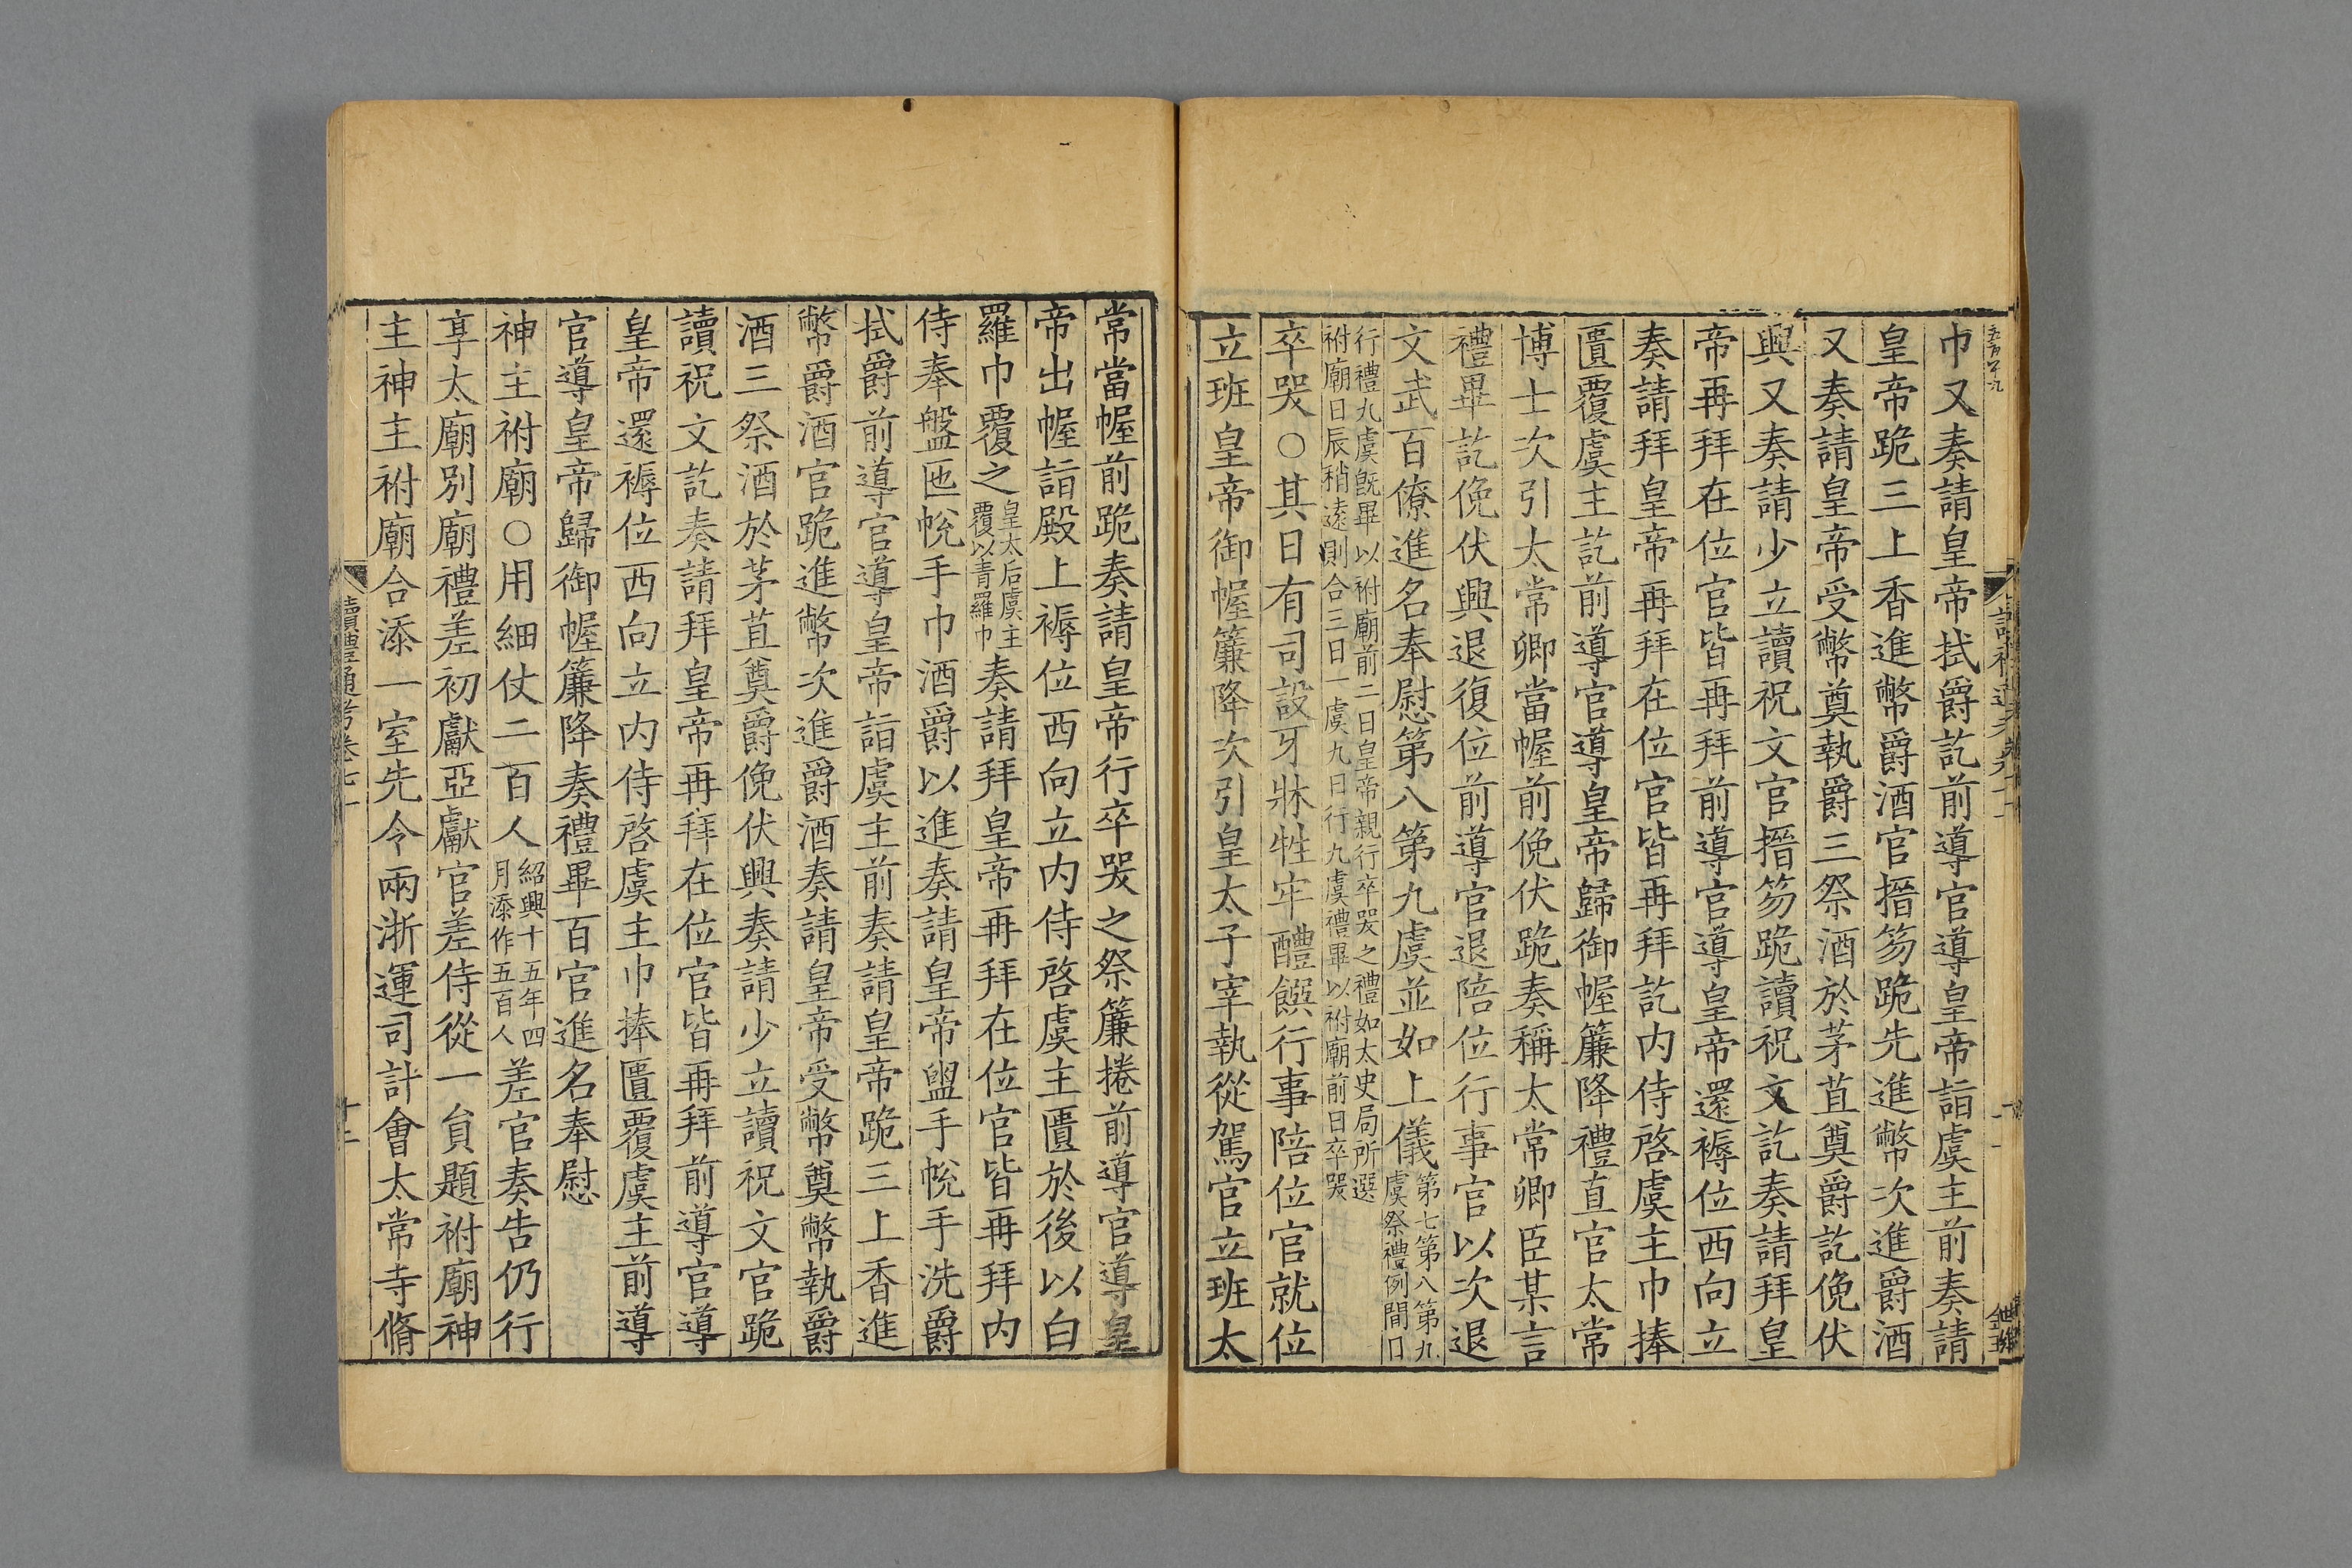 巾又奏請皇帝拭爵訖前導官導皇帝詣虞主前奏請
皇帝跪三上香進幣爵酒官搢笏跪先進幣次進爵酒
又奏請皇帝受幣奠執爵三祭酒於茅苴奠爵訖俛伏
興又奏請少立讀祝文官搢笏跪讀祝文訖奏請拜皇
帝再拜在位官皆再拜前導官導皇帝還褥位西向立
奏請拜皇帝再拜在位官皆再拜訖內侍啓虞主巾捧
匱覆虞主訖前導官導皇帝歸御幄簾降禮直官太常
博士次引太常卿當幄前俛伏跪奏稱太常卿臣某言
禮畢訖俛伏興退復位前導官退陪位行事官以次退
文武百僚進名奉慰第八第九虞並如上儀第七第八第九
虞祭禮例間日
行禮九虞旣畢以祔廟前二日皇帝親行卒哭之禮如太史局所選
祔廟日辰稍遠則合三日一虞九日行九虞禮畢以祔廟前日卒哭
卒哭○其日有司設牙牀牲牢醴饌行事陪位官就位
立班皇帝御幄簾降次引皇太子宰執從駕官立班太
常當幄前跪奏請皇帝行卒哭之祭簾捲前導官導皇
帝出幄詣殿上褥位西向立內侍啓虞主匱於後以白
羅巾覆之皇太后虞主
覆以青羅巾
奏請拜皇帝再拜在位官皆再拜內
侍奉盤匜帨手巾酒爵以進奏請皇帝盥手帨手洗爵
拭爵前導官導皇帝詣虞主前奏請皇帝跪三上香進
幣爵酒官跪進幣次進爵酒奏請皇帝受幣奠幣執爵
酒三祭酒於茅苴奠爵俛伏興奏請少立讀祝文官跪
讀祝文訖奏請拜皇帝再拜在位官皆再拜前導官導
皇帝還褥位西向立內侍啓虞主巾捧匱覆虞主前導
官導皇帝歸御幄簾降奏禮畢百官進名奉慰
神主祔廟○用細仗二百人紹興十五年四
月添作五百人
差官奏告仍行
享太廟別廟禮差初獻亞獻官差侍從一貟題祔廟神
主神主祔廟合添一室先令兩浙運司計會太常寺脩
讀禮通考卷七十一
十二